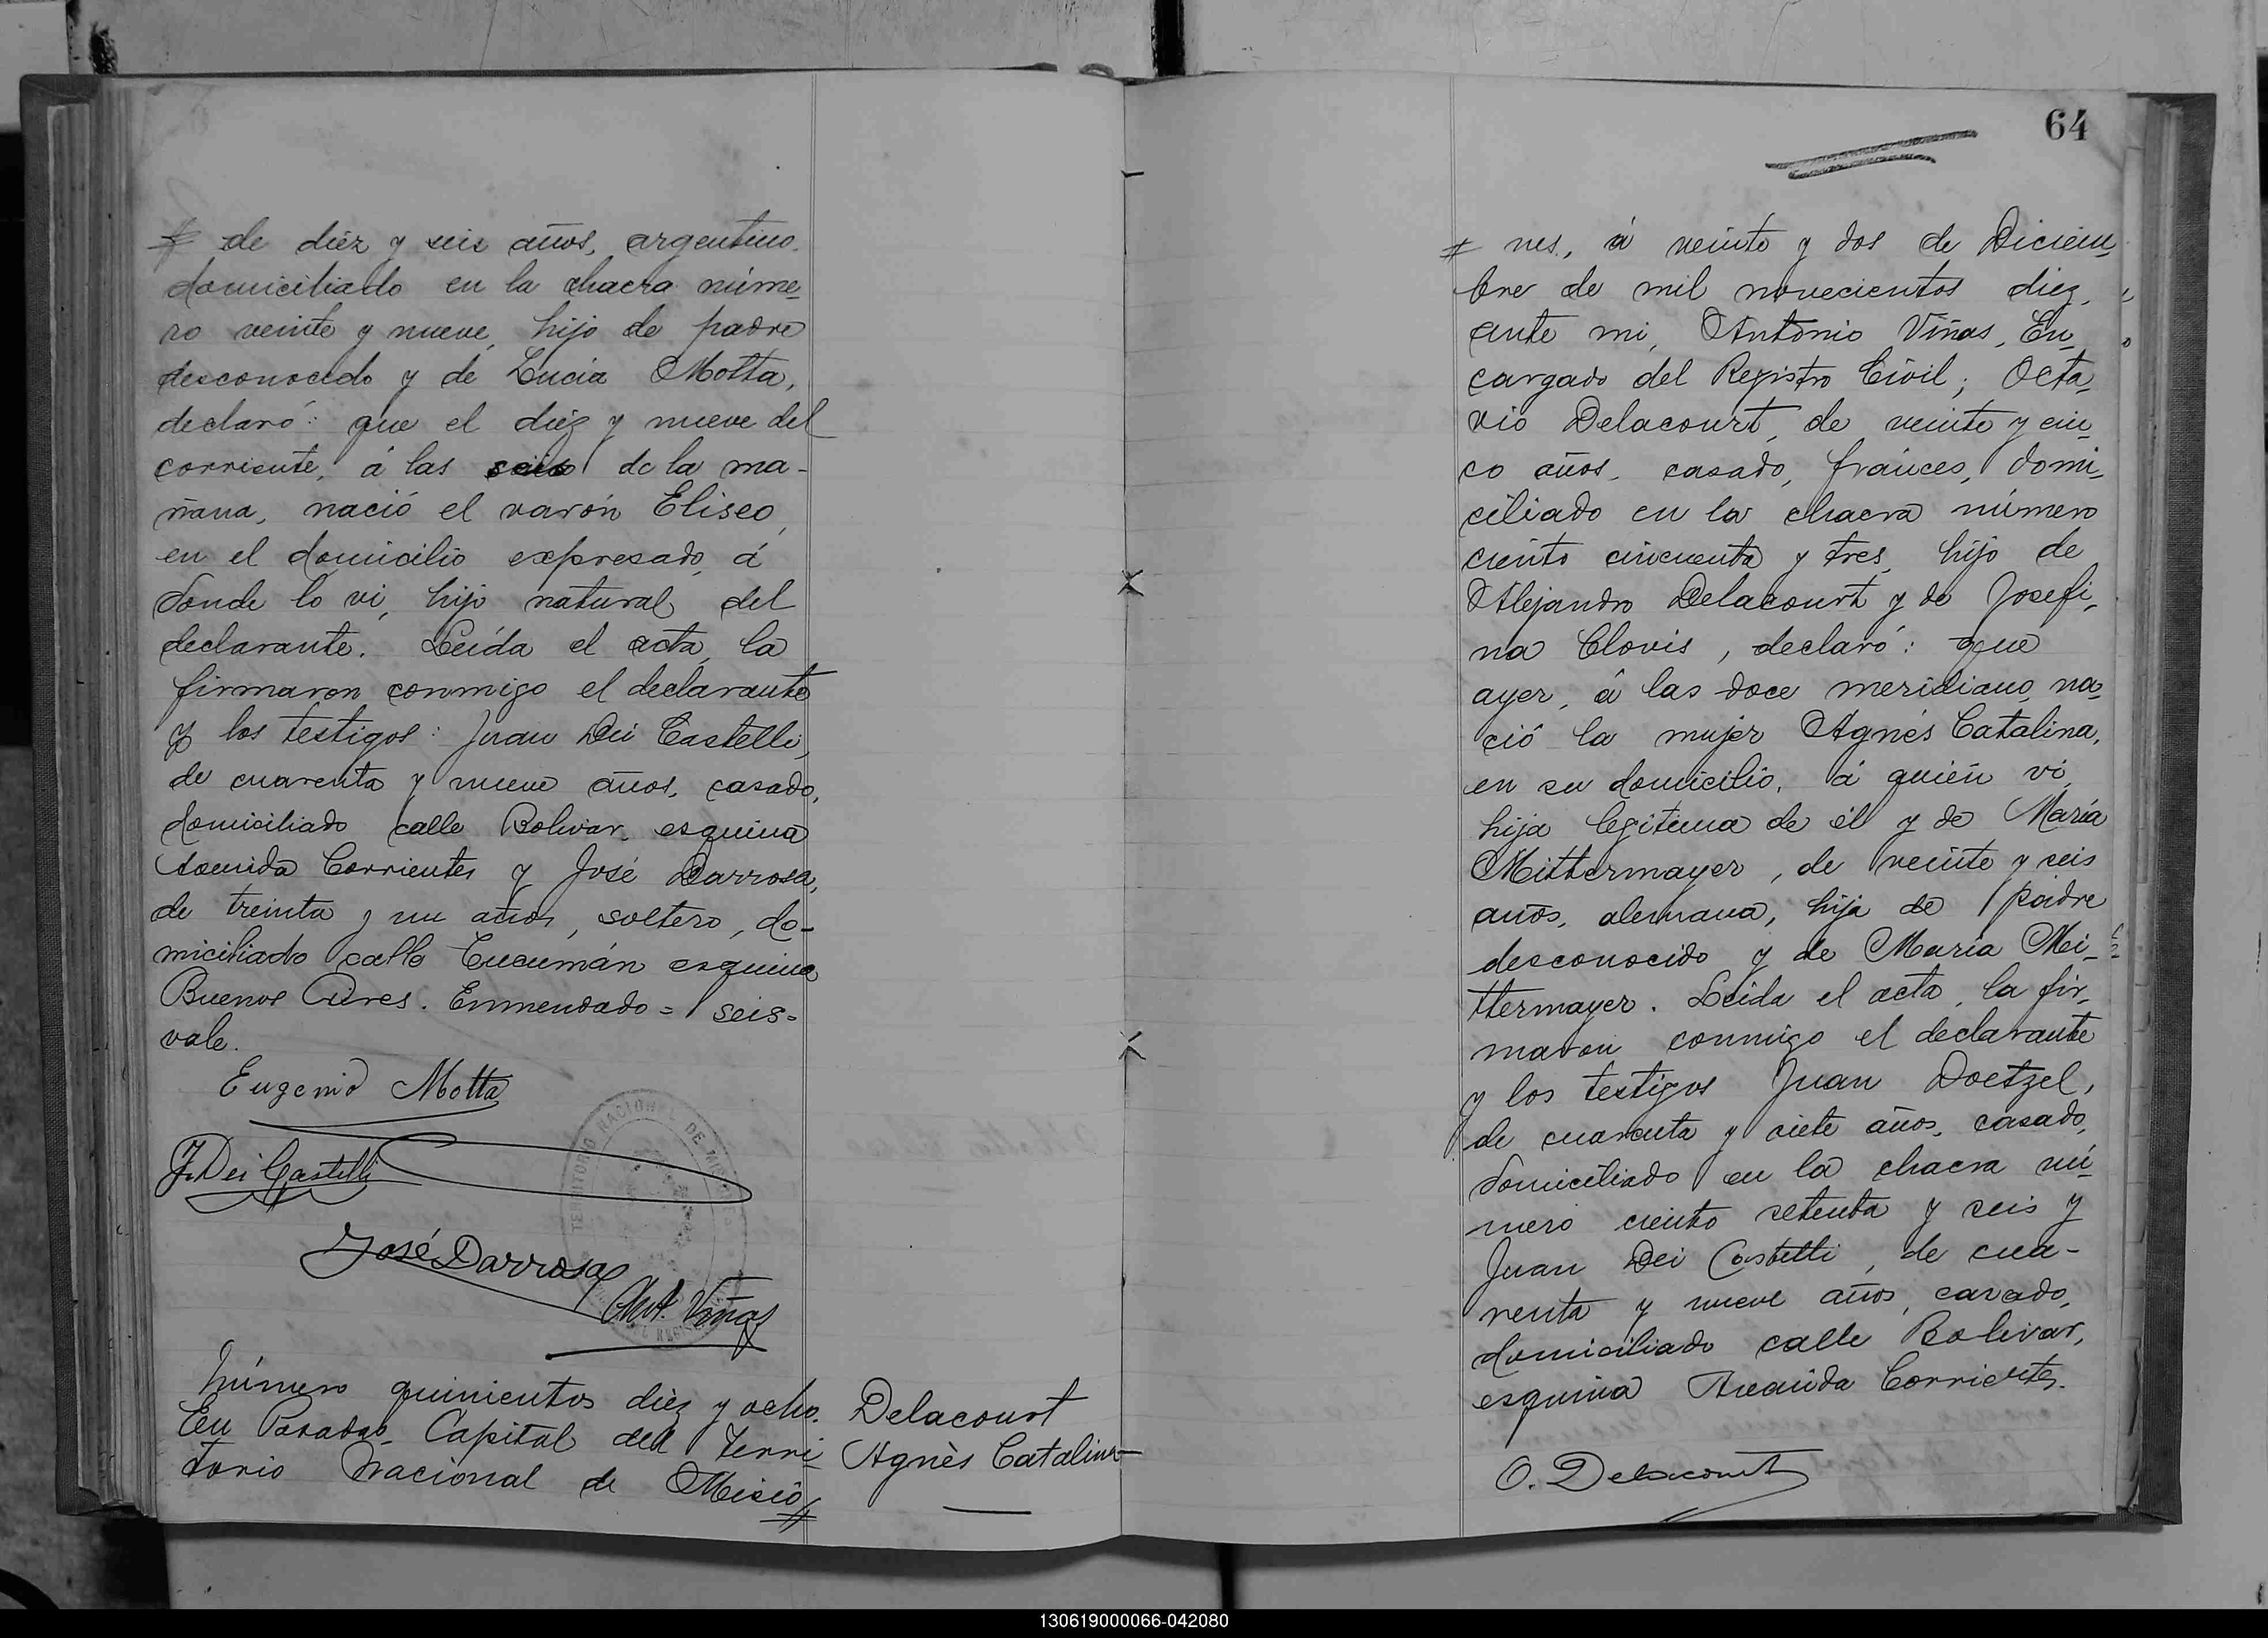 # de diéz y seis años, argentino.
domiciliado en la chacra núme-
ro veinte y nueve, hijo de padre
desconocido y de Lucia Motta,
declaró: que el diéz y nueve del
corriente, á las seis de la ma-
ñana, nació el varón Eliseo,
en el domicilio expresado, á
donde lo vi, hijo natural del
declarante. Leída el acta, la
firmaron conmigo el declarante
y los testigos: Juan Dei Castelli,
de cuarenta y nueve años, casado,
domiciliado calle Bolivar, esquina
Avenida Corrientes y José Darrosa,
de treinta y un años, soltero, do-
miciliado calle Tucumán esquina
Buenos Aires. Enmendado = seis =
vale.
Eugenio Motta
J. Dei Castelli
José Darrosa
Ant. Viñas
TERRITORIO NACIONAL DE MISIONES
Número quinientos diez y ocho.
En Posadas, Capital del Terri-
torio Nacional de Misio#
Delacourt
Agnès Catalina
64
# nes, á veinte y dos de Diciem-
bre de mil novecientos diez,
ante mi, Antonio Viñas, En-
cargado del Registro Civil; Octa-
vio Delacourt, de veinte y cin-
co años, casado, fránces, domi-
ciliado en la chacra número
ciento cincuenta y tres, hijo de
Alejandro Delacourt y de Josefi-
na Clovis, declaró: que
ayer, á las doce meridiano, na-
ció la mujer Agnés Catalina,
en su domicilio, á quién vi,
hija legitima de él y de María
Mittermayer, de veinte y seis
años, alemana, hija de padre
desconocido y de María Mei-
ttermayer. Leida el acta, la fir-
maron conmigo el declarante
y los testigos Juan Doetzel,
de cuarenta y siete años, casado,
domiciliado en la chacra nú-
mero ciento setenta y seis y
Juan Dei Castelli, de cua-
renta y nueve años, casado,
domiciliado calle Bolivar,
esquina Avenida Corrientes.
O. Delacourt
130619000066-042080